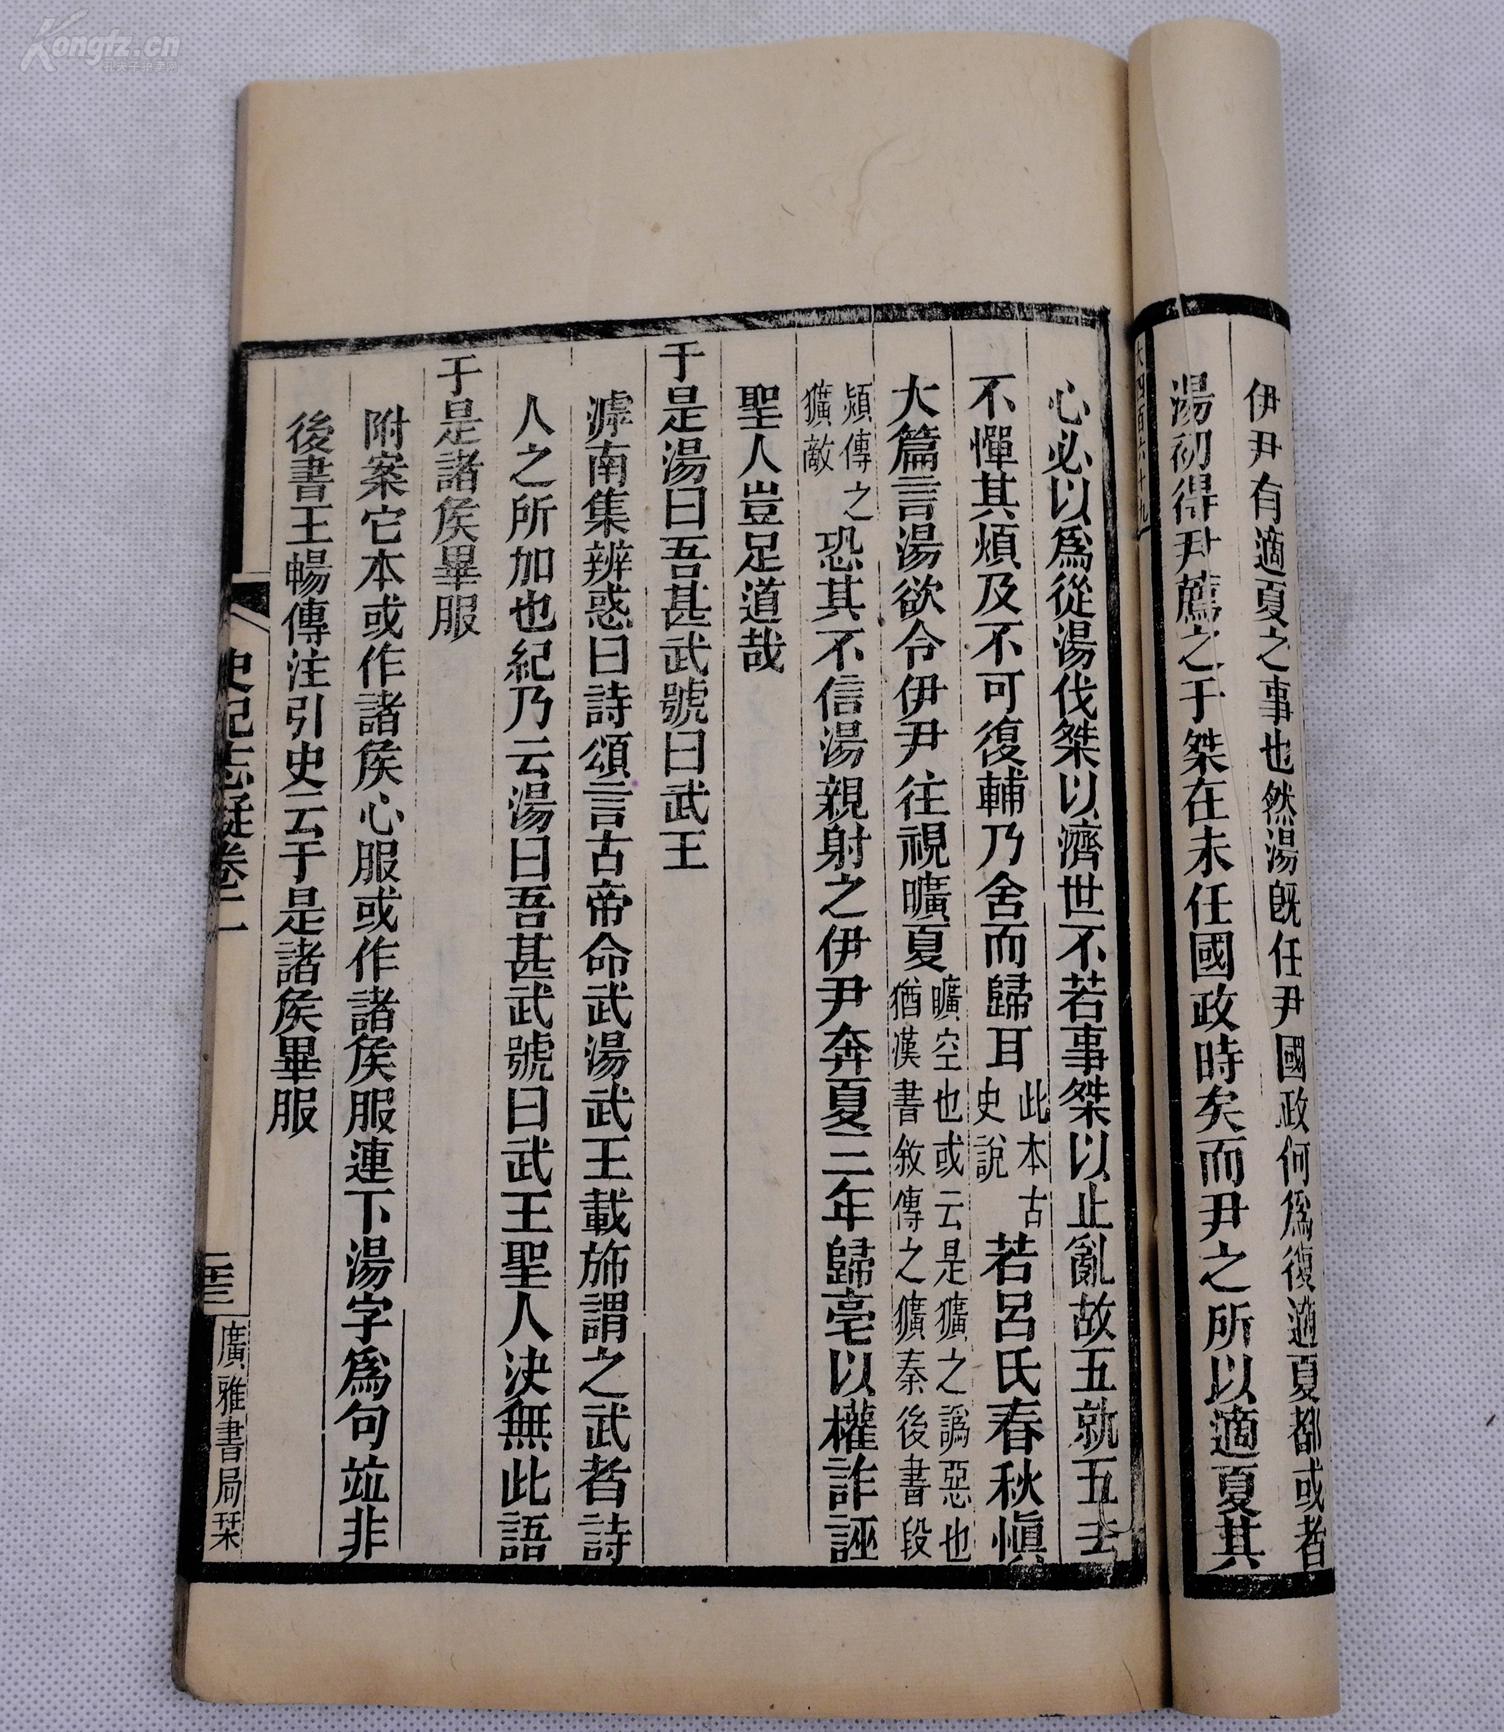 伊尹有適夏之事也然湯既任尹國政何爲復適夏都或者
湯初得尹薦之于桀在未任國政時矣而尹之所以適夏其
大四百六十九
心必以爲從湯伐桀以濟世不若事桀以止亂故五就五去
不憚其煩及不可復輔乃舍而歸耳此本古史說若呂氏春秋愼
大篇言湯欲令伊尹往視曠夏曠空也或云是獷之譌惡也猶漢書敘傳之獷秦後書段
熲傳之獷敵恐其不信湯親射之伊尹奔夏三年歸亳以權詐誣
聖人豈足道哉
于是湯曰吾甚武號曰武王
滹南集辨惑曰詩頌言古帝命武湯武王載斾謂之武者詩
人之所加也紀乃云湯曰吾甚武號曰武王聖人決無此語
于是諸矦畢服
附案它本或作諸矦心服或作諸矦服連下湯字爲句竝非
後書王暢傳注引史云于是諸矦畢服
史記志疑卷二
廣雅書局栞
Kongfz.cn
孔夫子拍卖网